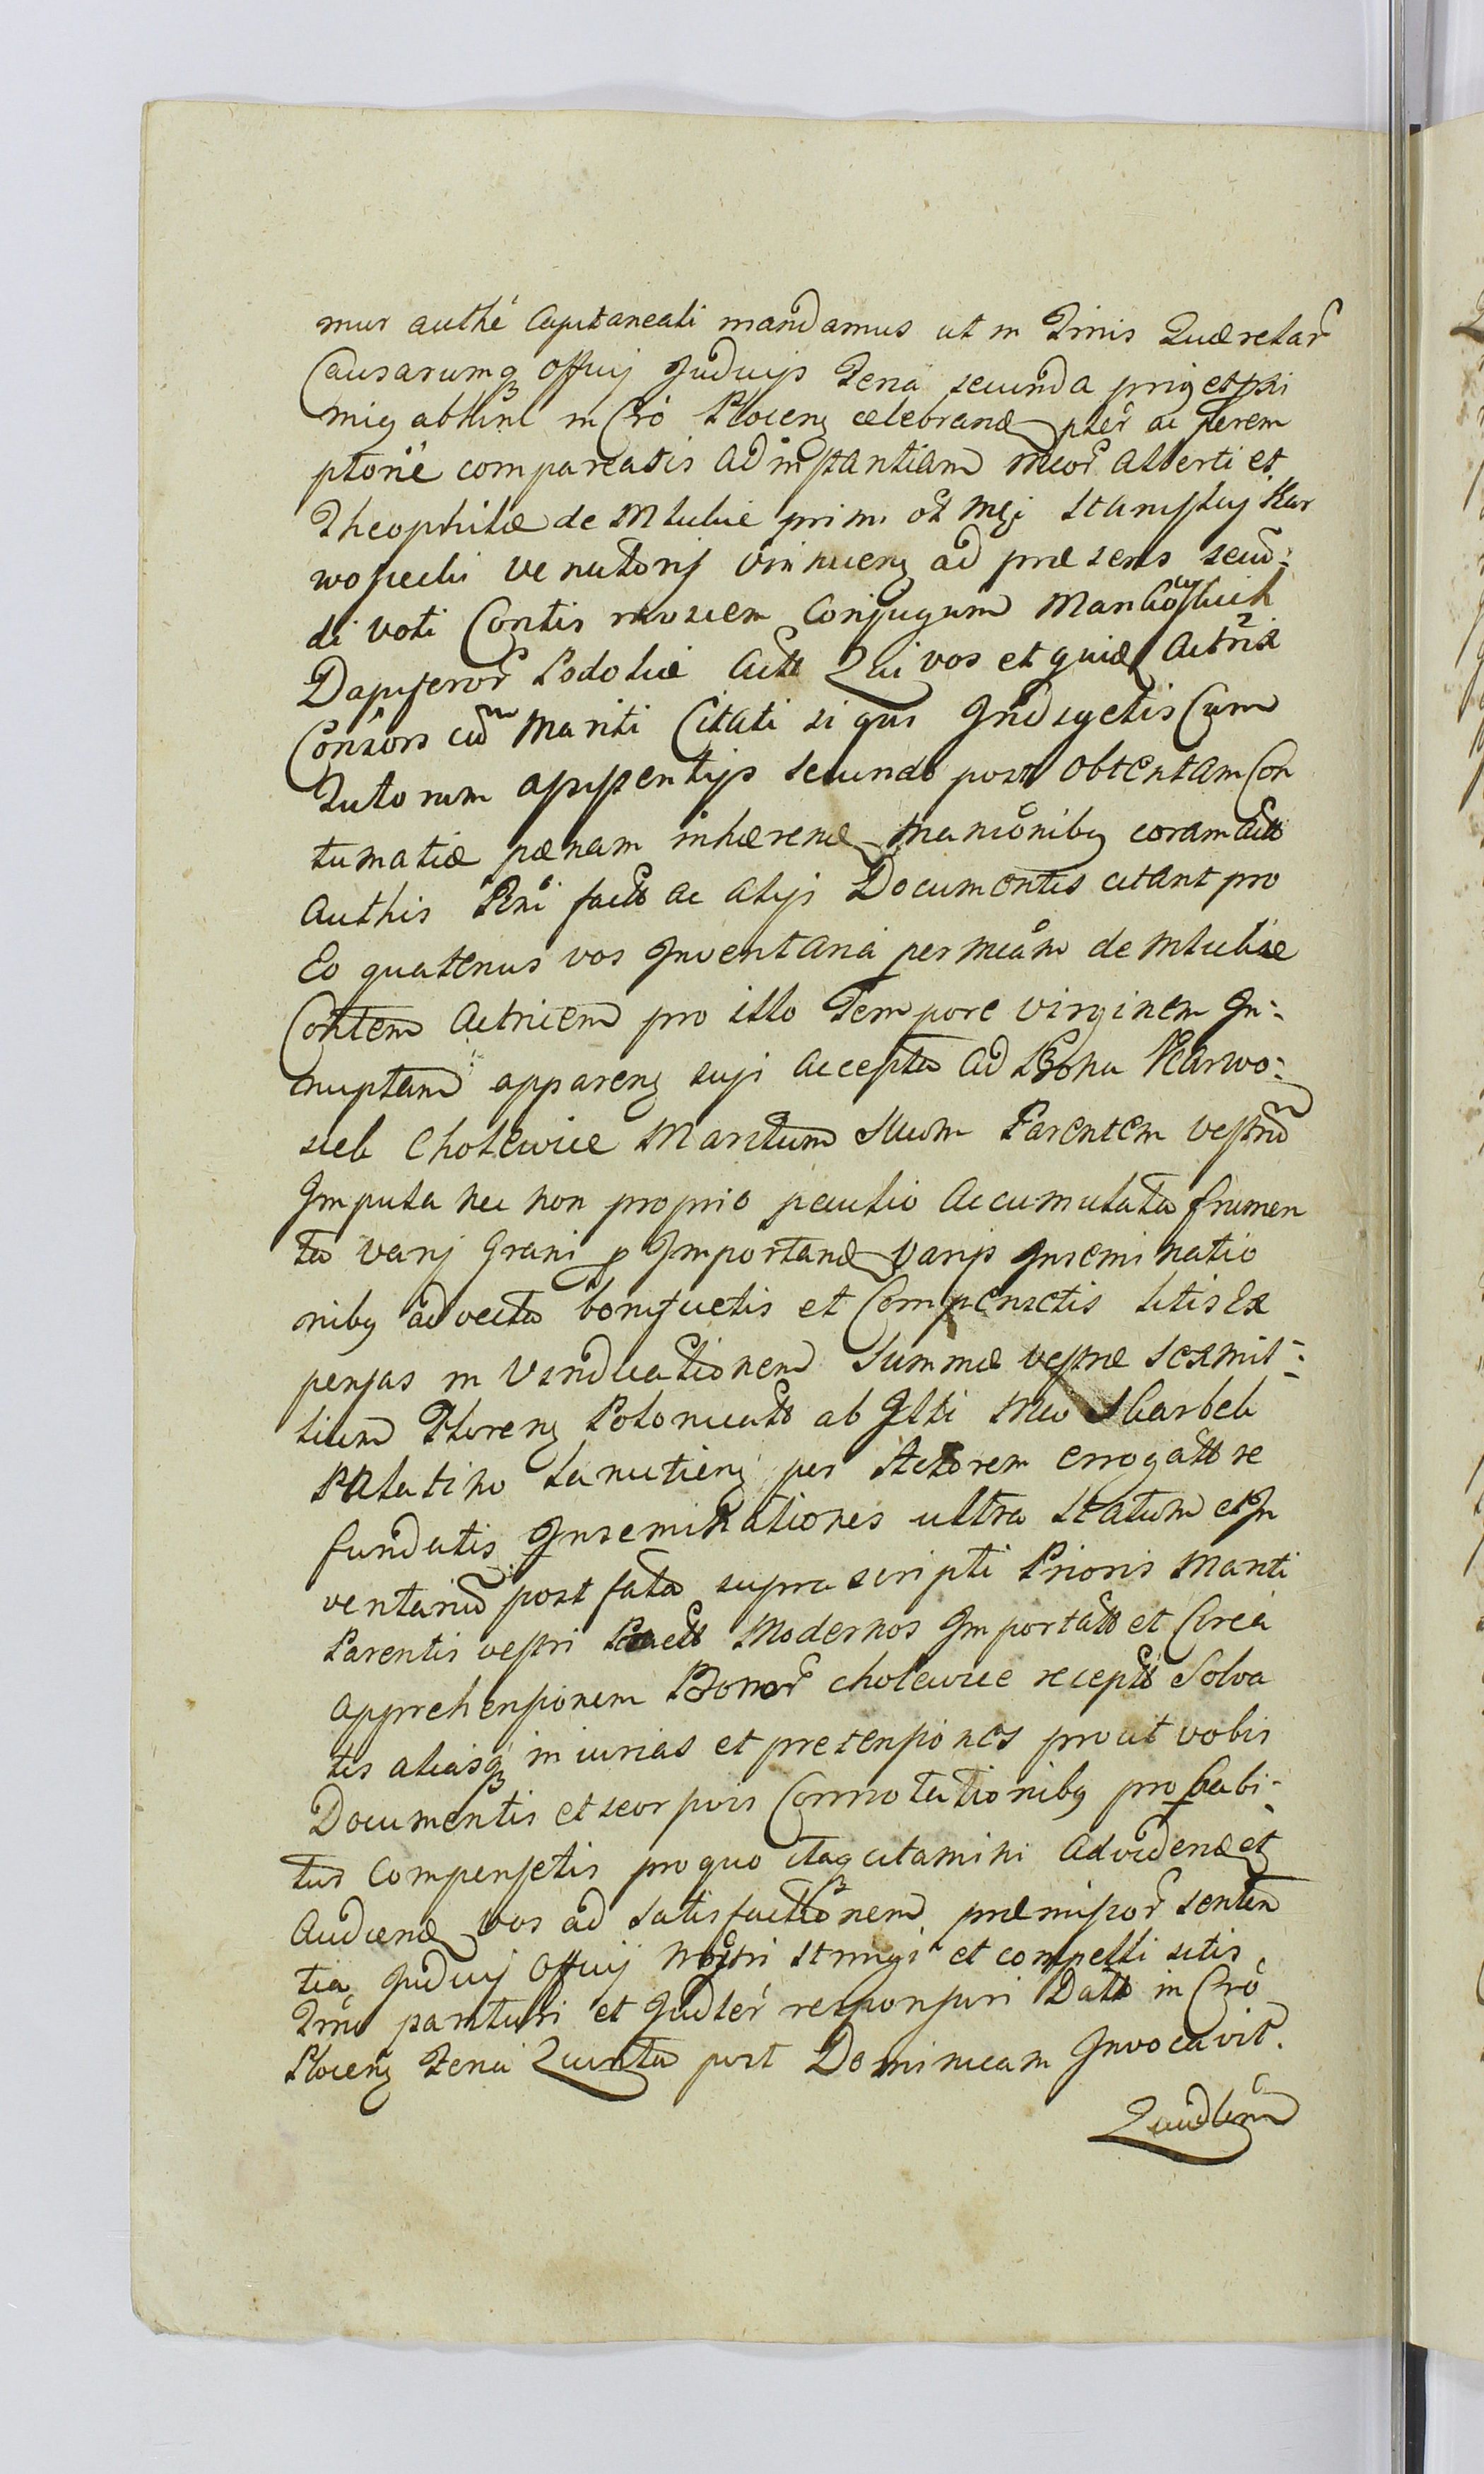 mur authē Capitaneali mandamus ut in Trnis Quæretar̃
Causarumq̨ Officij Judicijs Feria secunda
in Crō Plocenȩ celebrandȩ pter̃ ac perem
ptorie compareatis ad instantiam Mcor̃ Alberti et
Theophilæ de Mlickie primi ot Mgi Stanislaj Kar
wosiecki Venatorij Vinnicenȩ ad præsens secūn:
di voti Contis
Dapiferor̃ Podoliæ Actt Qui vos et quidē Actrix
Consors cum Mariti Citati si quis Indigetis Cum
Tutorum assistentijs secundo post obtentam Con
tumatiæ pænam inhærendȩ Manionibȩ coram Actt
Authis Pñi factt ac alijs Documentis citant pro
Eo quatenus vos Inventaria per Mcam de Mlickie
Contem Actricem pro illo Tempore virginem In:
nuptam apparenȩ accepta ad Bona Karwo:
sieki Cholewice Maritum suum Parentem vestrū
Imputa nec non proprio peculio accumulata frumen
ta varij Grani ꝑ Importandȩ varijs Inseminatio
nibȩ advecta bonificetis et Compensetis litis Ex
pensas in Vendicationem Summæ vestræ Sexmil:
lium Florenȩ Polonicatt ab Illi Mco Skarbek
Palatino Lancitienȩ per Actorem errogatt re
fundatis Inseminationes ultra Statum et In
ventariū post fata supra scripti Prioris Mariti
Parentis vestri Modernos Importatt et Circa
apprehensionem Bonor̃ Cholewice receptt Solva
tis aliasq̨ iniurias et pretensiones prout vobis
Documentis et seorsivis Connotationibȩ probabi:
tur Compensetis pro quo itaq̨ citamini ad videndȩ et
Audiendȩ vos ad satisfactionem præmissor̃ senten
tia Judicij Officij Nostri stringi et compelli sitis
Trnu parituri et Judlēr responsuri Datt in Crō
Plocenȩ Feria Quinta post Dominicam Invocavit.